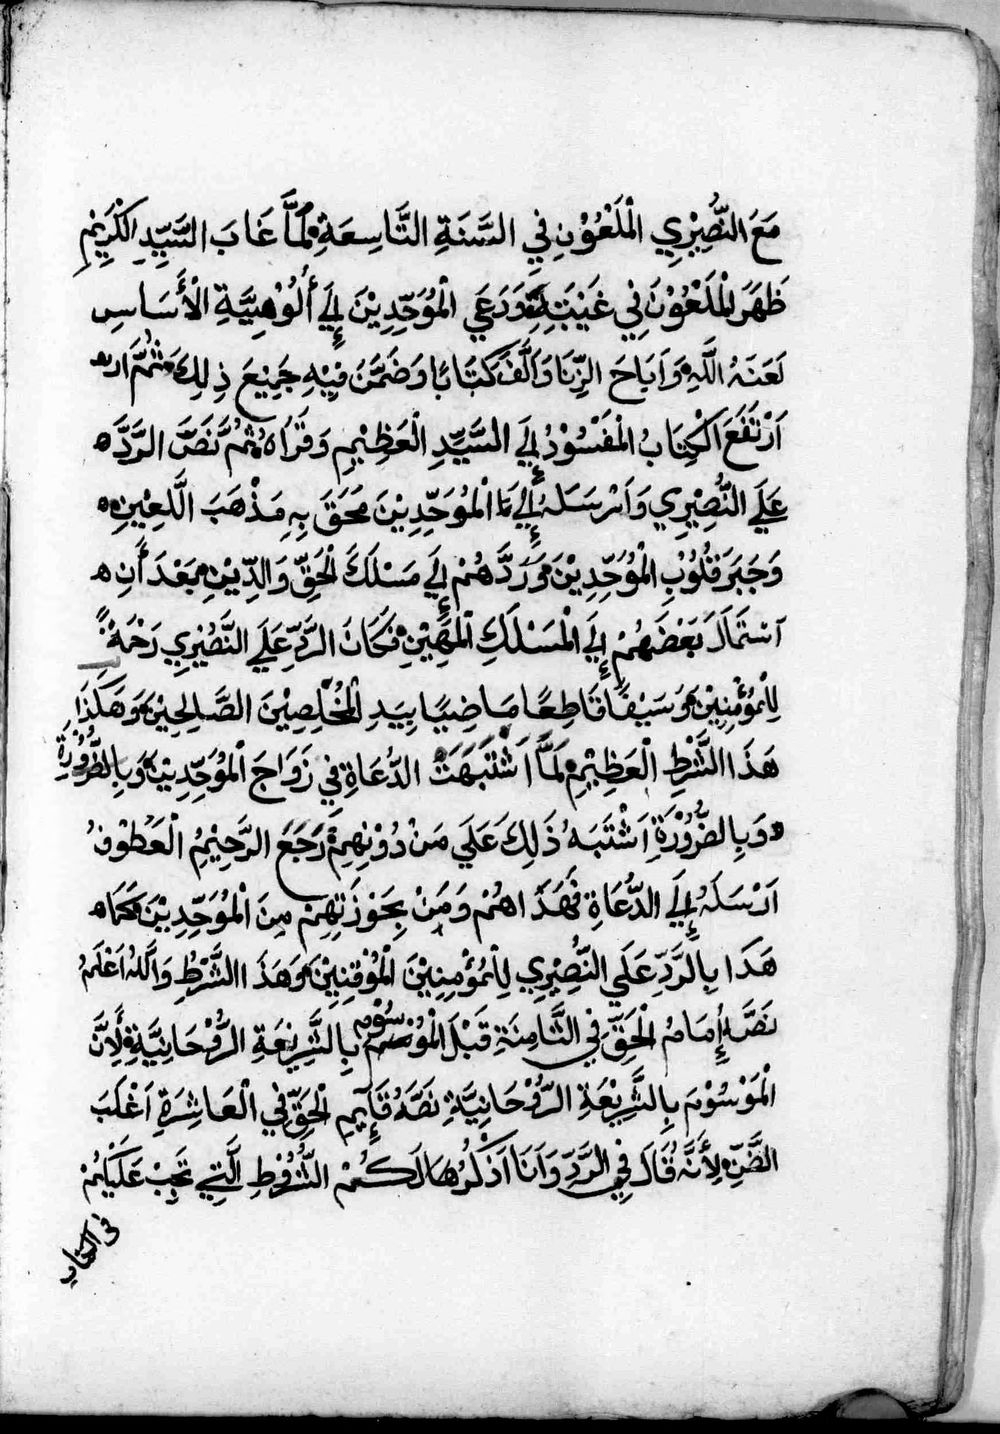 مَعَ النُّصِيْرِي الْمَلْعُوْنِ فِي السَّنَةِ التَّاسِعَةِ لَمَّا غَابَ السَّيِّدِ الْكَرِيْمِ
ظَهَرَ الْمَلْعُوْنَ فِي غَيْبَتِهِ وَدَعَي الْمُوَحِّدِيْنَ إِلَي أُلُوْهِيَّةِ الْأَسَاسِ
لَعَنَهُ اللَّهِ وَاَبَاحَ الزِّنَا وَاَلَّفَ كِتَابًا وَضَمَّنَ فِيْهِ جَمِيْعَ ذٰلِكَ ثُمَّ ار
اَرْتَفَعَ الْكِتَابُ الْمَفْسُوْدُ إِلَي السَّيِّدِ الْعَظِيْمِ وَقَرَاهُ ثُمَّ نَصَّ الرَّدَّ
عَلَي النُّصِيْرِي وَاَرْسَلَهُ إِلَي الْمُوَحِّدِيْنَ مَحَقَ بِهِ مَذْهَبَ اللَّعِيْنِ
وَجَبَرَ قُلُوْبِ الْمُوَحِّدِيْنَ وَرَدَّهُمْ إِلَي مَسْلَكَ الْحَقِّ وَالدِّيْنِ بَعْدَ أَنِ
اَسْتَمَالَ بَعْضَهُمْ إِلَي الْمَسْلَكِ الْمَهِيْنِ فَكَانَ الرَّدِّ عَلَي النُّصِيْرِي رَحْمَةً
لِلْمُؤْمِنِيْنَ وَسَيْفًا قَاطِعًا مَاضِيًا بِيَدِ الْمُخْلِصِيْنَ الصَّالِحِيْنَ وَهَكَذَا
هَذَا الشَّرْطِ الْعَظِيْمِ لَمَّا اَشْتَبَهَتْ الدُّعَاةِ فِي زَوَاجَ الْمُوَحِّدِيْنَ وَبِالضُّرُوْرَةِ
وَبِالضُّرُوْرَةِ اَشْتَبَهُ ذَلِكَ عَلَي مَنْ دُوْنِهِمْ رَجَعَ الرَّحِيْمُ الْعَطُوْفُ
اَرْسَلَهُ إِلَي الدُّعَاةِ فَهَدَاهُمْ وَمَنْ بِحَوْزَتِهِمْ مِنَ الْمُوَحِّدِيْنَ كَمَا
هَدَا بِالرَّدِّ عَلَي النُّصِيْرِي لِلْمُؤْمِنِيْنَ الْمُوْقِنِيْنَ وَهَذَا الشَّرْطُ وَاللهُ اَعْلَمُ
نَصَّهُ إِمَامُ الْحَقِّ فِي الثَّامِنَةِ قَبْلَ الْمُوْسُوْمِ بِالشَّرِيْعَةِ الرُّوْحَانِيَّةِ لِأَنَّ
الْمَوْسُوْمَ بِالشَّرِيْعَةِ الرُّوْحَانِيَّةِ نَصَّهُ قَآئِمِ الْحَقِّ فِي الْعَاشِرَةِ اَغْلَبَ
الظَّنِّ لِأَنَّهُ قَالَ فِي الرَّدِّ وَاَنَا اَذْكُرُهَا لَكُمْ الشُّرُوْطِ الَّتِي تَجِبْ عَلَيْكُمْ
في الكتاب